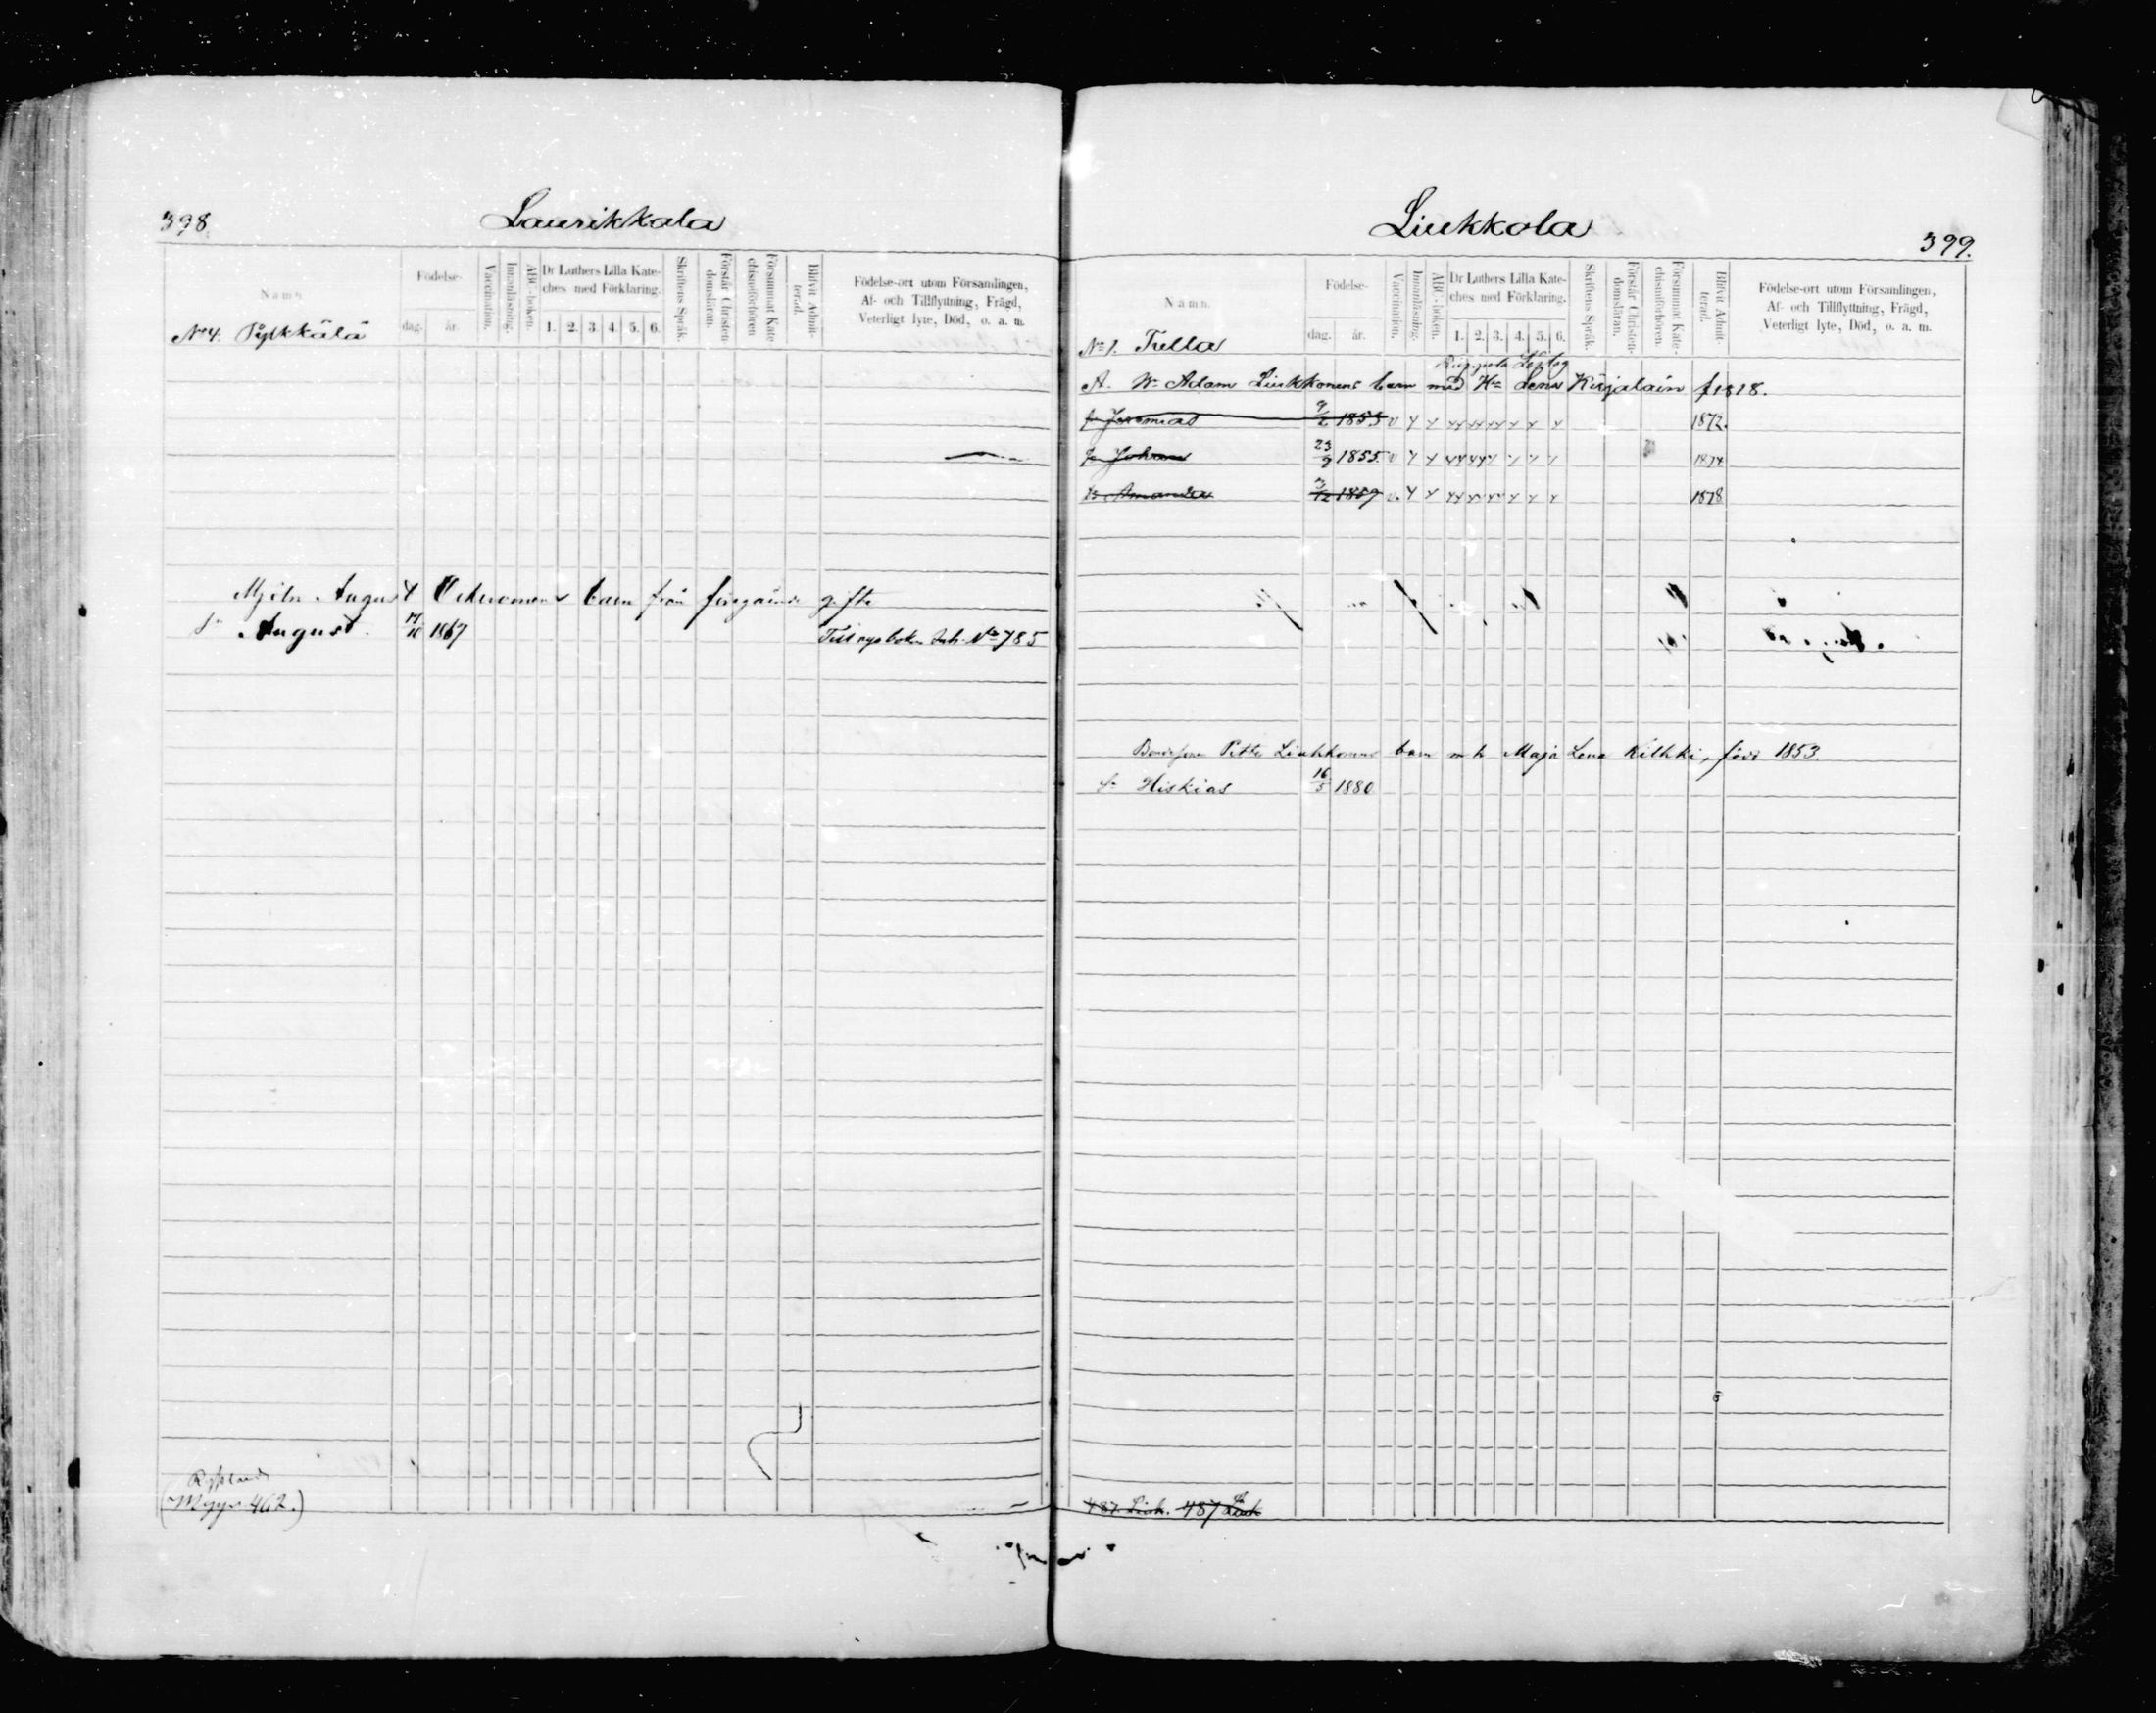 398.
Laurikkala
Namn.
Födelse-
dag.
år.
Vaccination.
Innanläsning.
ABC-boken.
Dr Luthers Lilla Kate-
ches med Förklaring.
1. 2. 3. 4. 5. 6.
Skriftens Språk.
Förstår Christen-
domsläran.
Försummat Kate-
chismiförhören
Blifvit Admit-
terad.
Födelse-ort utom Församlingen,
Af- och Tillflyttning, Frägd,
Veterligt lyte, Död, o. a. m.
No 4. Pylkkälä
August barn från föregående gifte
Sn August. 1867 No 785
462.)
Liukkola
399.
Namn.
Födelse-
dag.
år.
Vaccination.
Innanläsning.
ABC-boken.
Dr Luthers Lilla Kate-
ches med Förklaring.
1. 2. 3. 4. 5. 6.
Skriftens Språk.
Förstår Christen-
domsläran.
Försummat Kate-
chismiförhören.
Blifvit Admit-
terad.
Födelse-ort utom Församlingen,
Af- och Tillflyttning, Frägd,
Veterligt lyte, Död, o. a. m.
No 1. Tella
A. Wn Adam Liukkonens barn med Hu Lena f 1818.
Sn Jeremias 9/2 1853 v 1872.
Sn Johan 23/9 1855. v 1874
Dr Amanda 1859 v. 1878
Bondeson Petter Liukkonens barn m h Maja Lena Kilkki, född 1853.
Sn Hiskias 16/5 1880
487. Liuk. 487 Liuk